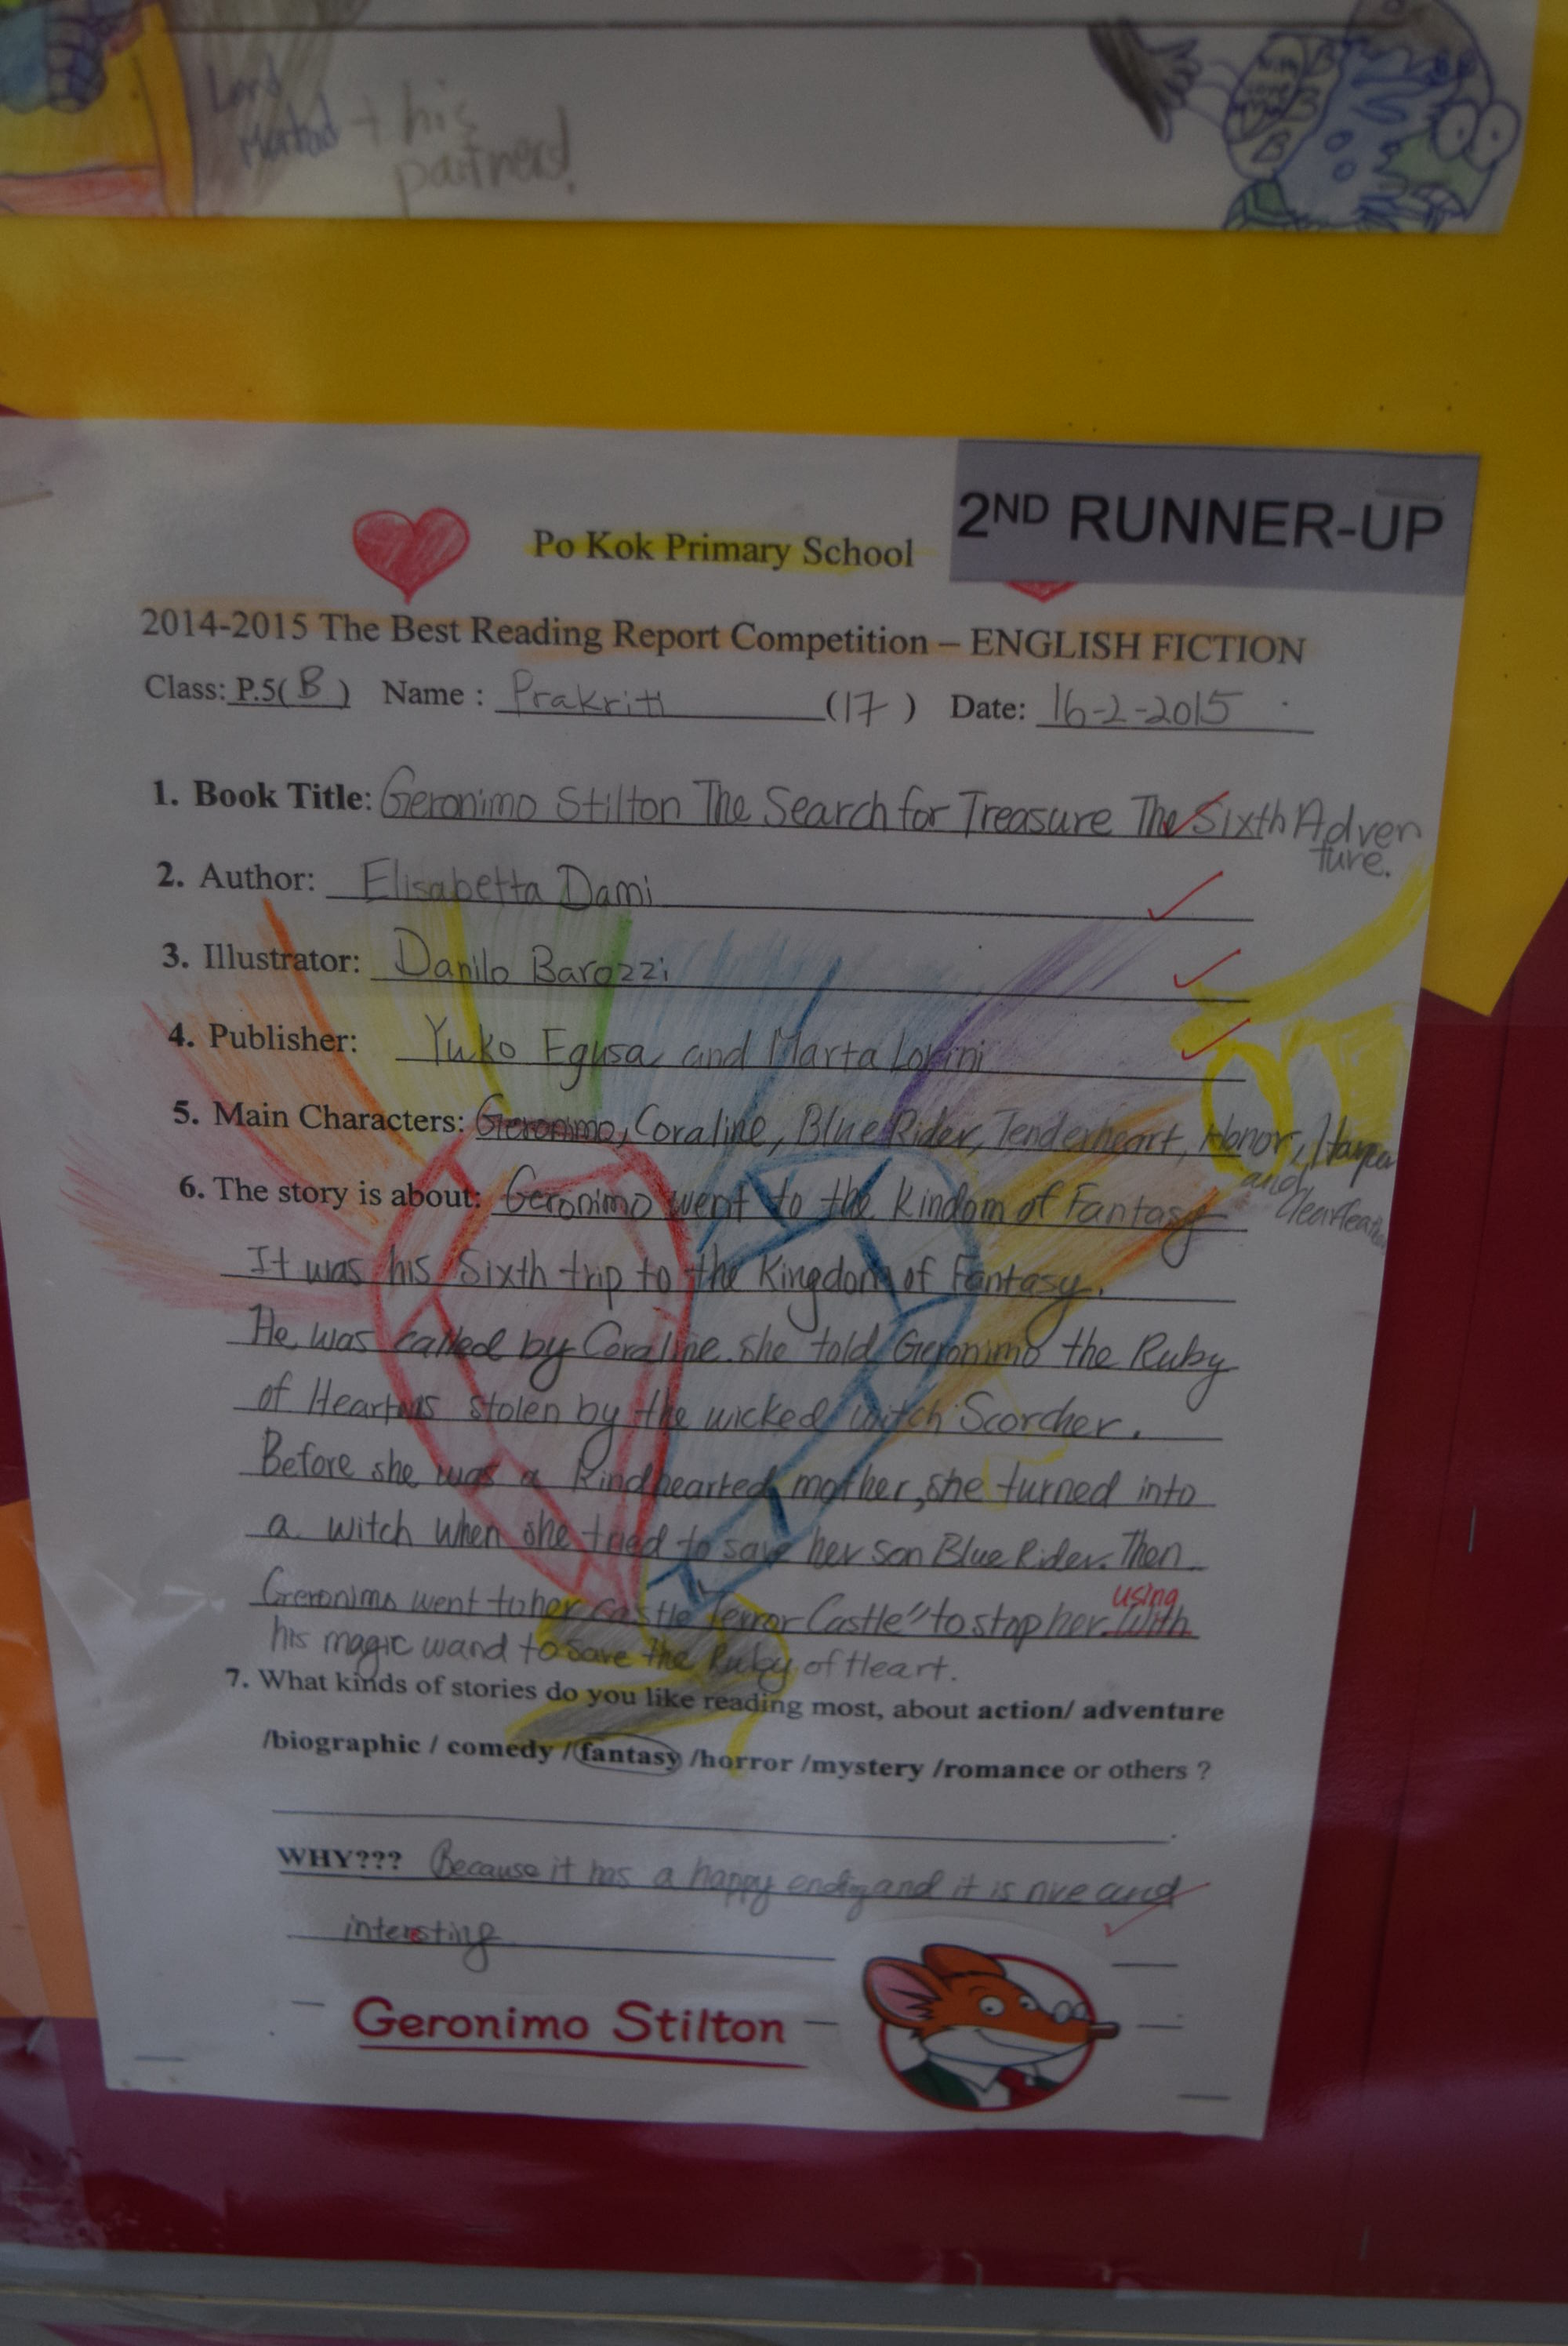 Lord
+ his
partners!
2ND RUNNER-UP
Po Kok Primary School
2014-2015 The Best Reading Report Competition – ENGLISH FICTION
Class: P.5( B ) Name : Prakriti (17) Date: 16-2-2015
1. Book Title: Geronimo Stilton The Search for Treasure The Sixth Adven
ture.
2. Author: Elisabetta Dami
3. Illustrator: Danilo Barozzi
4. Publisher: Yuko Egusa and Marta Lorini
5. Main Characters: Geronimo, Coraline, Blue Rider, Tenderheart, Honor,
and
6. The story is about: Geronimo went to the kindom of Fantasy
It was his Sixth trip to the Kingdom of Fantasy.
He was called by Coraline. she told Geronimo the Ruby
of Heart was stolen by the wicked witch Scorcher.
Before she was a kindhearted mother, she turned into
a witch when she tried to save her son Blue Rider. Then
using
Geronimo went to her castle "Terror Castle" to stop her. with
his magic wand to save the Ruby of Heart.
7. What kinds of stories do you like reading most, about action/ adventure
/biographic / comedy / fantasy /horror /mystery /romance or others ?
WHY??? Because it has a happy ending and it is nice and
intersting
Geronimo Stilton